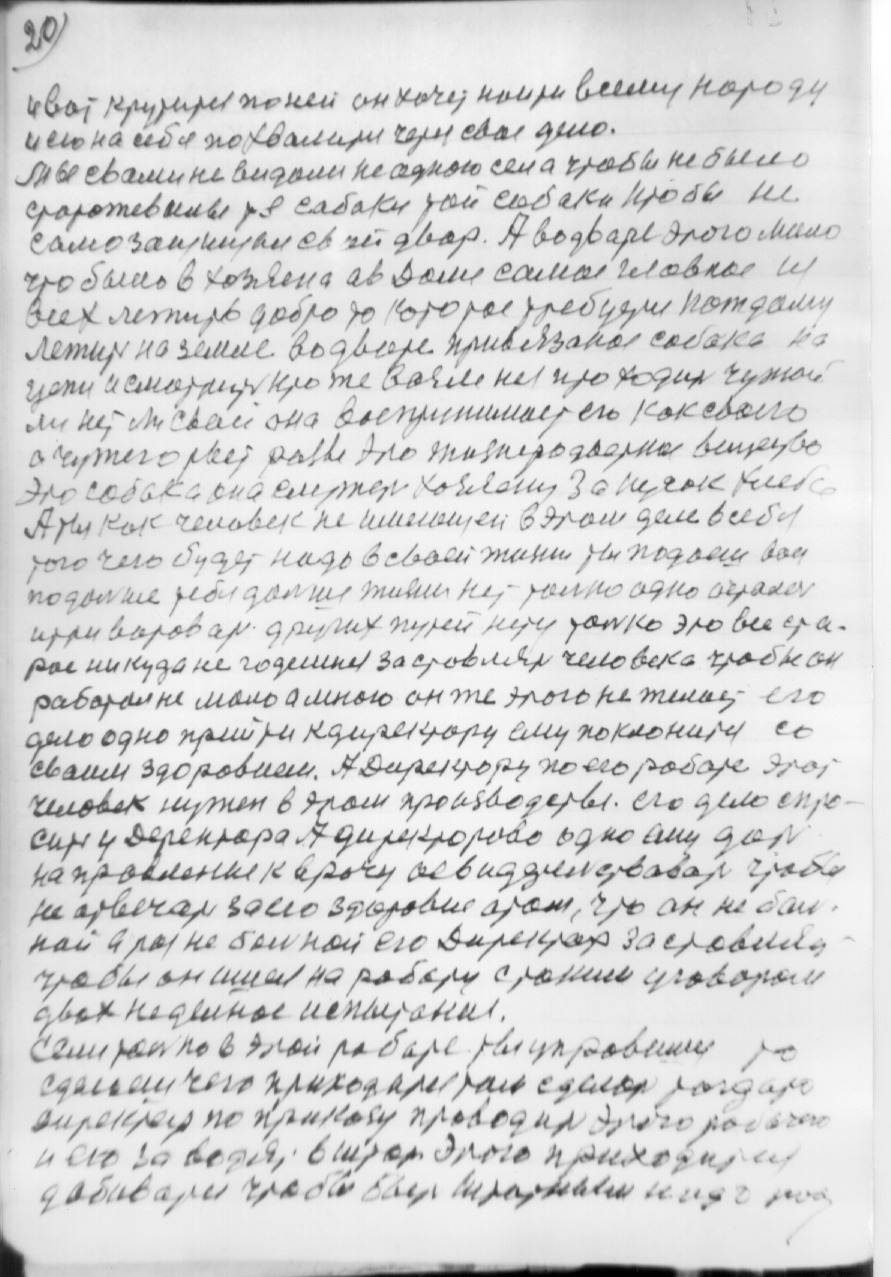 20)
и вот крутится по ней он хочет найти всему народу
и его на себя похвалити через свое дело.
Мы с вами не видали не одного села чтобы не было
сторожевыя собаки той собаки чтобы не
само защищал свой двор. А водваре этого мало
что было в хозяена а в Доме самое главное и
всех лежить добро то которое требуети каждому
лежит на земле водворе привязаная собака на
цепи и смотрит кто же возле нея проходит чужой
ли нет ли свой она воспринимает его как своего
а чужего рвет разве это жизнерадостное вещество
Это собака она служит хозяену за кусок хлеба
А ты как человек не имеющей в этом деле в себя
того чего будет надо в своей жизни ты подаеш вои
подальше тебя дальше жизни нет только одно остался
итти воровал других путей нету только это все ста-
рое никуда не годешнея заставляет человека чтобы он
работал не мало а много он же этого не желает его
дело одно прийти к директору ему поклонится со
своим здоровием. А Директору по его работе этот
человек нужен в этом производстве. его дело спро-
сить у Деректора А директорово одно ему дать
направление к врачу освиддетельствоват чтобы
не отвечал за его здоровие о том, что он не бол.
ной а раз не болной его Директор заставляет
чтобы он ишел на работу с таким уговором
двох неделное испытание.
Если только в этой работе ты управишся то
сделаеш чего приходится там сделат тогдато
директор по приказу проводит этого робочего
и его заводят в штат Этого приходится
добивается чтобы был штатным